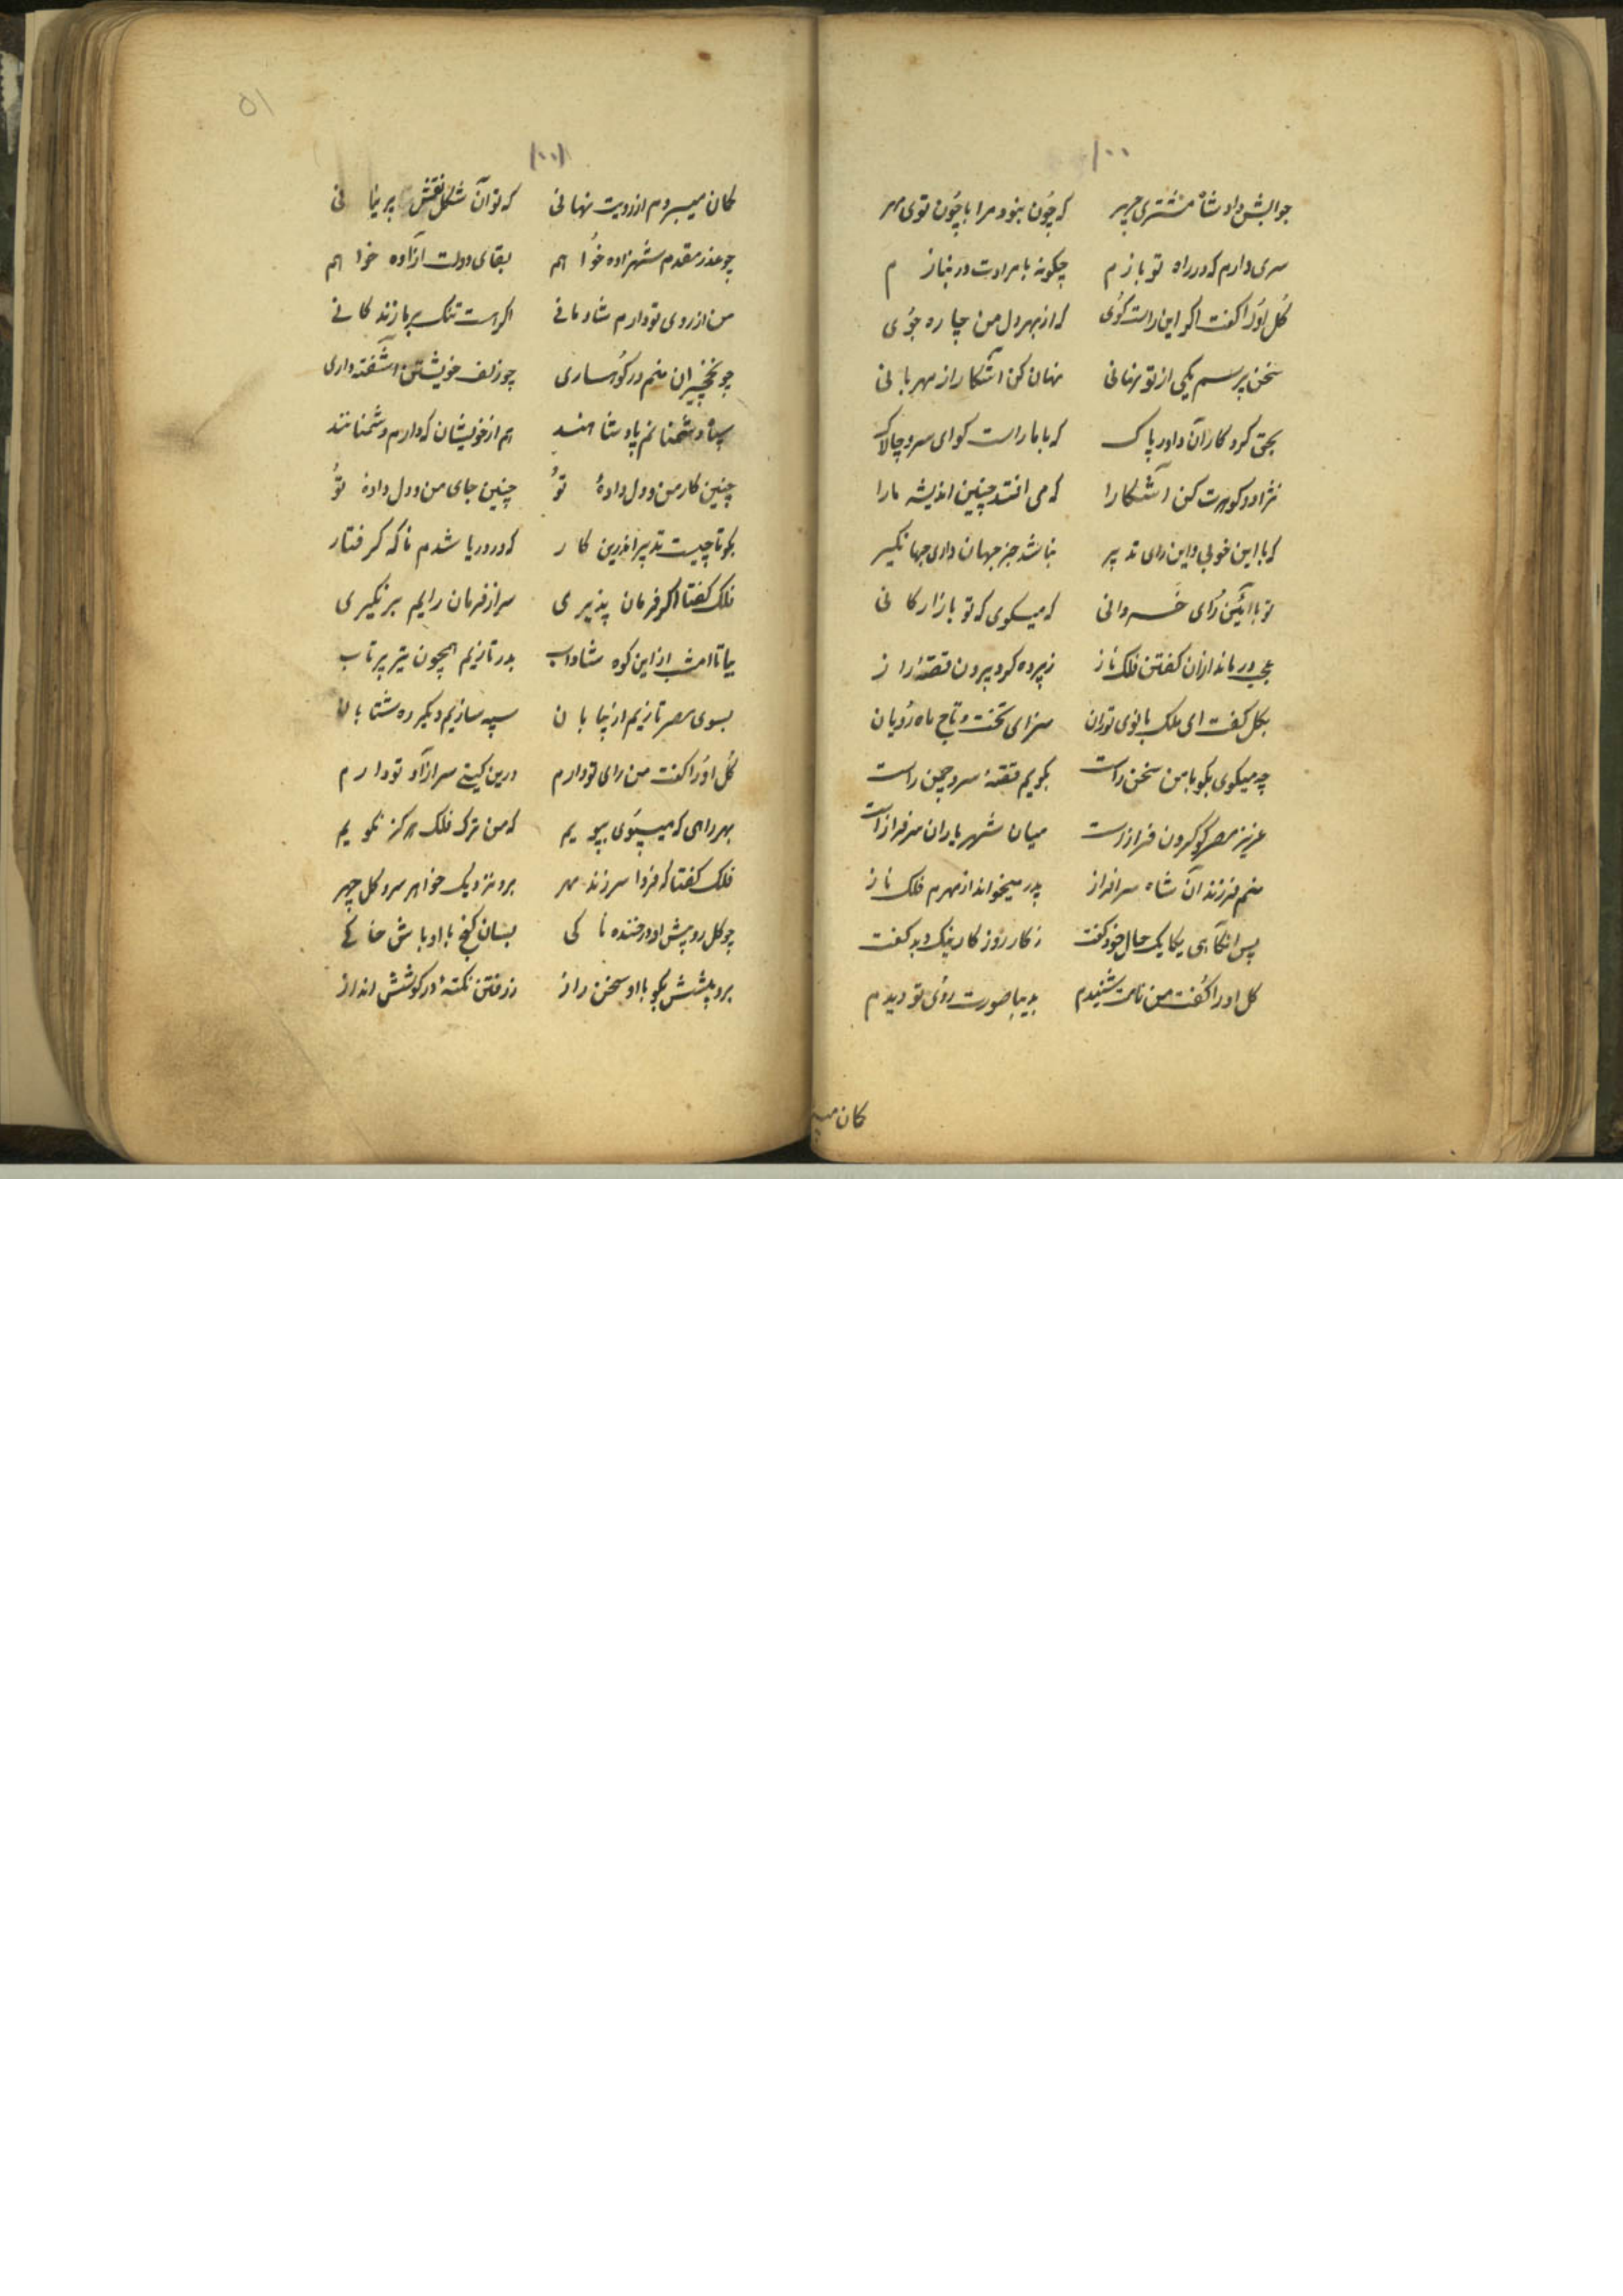 ۱۰۰
جوابش داد شاه مشتری چهر که چون نبود مرا با چون توی مهر
سری دارم که در راه تو بازم چکونه با مرادت در نیازم
کل او را کفت اکر این راست کوی که از بهر دل من چاره جوی
سخن پرسم یکی از تو نهانی نهان کن آشکار از مهربانی
بحق کردکار آن داور پاک که با ما راست کو ای سرو چالاک
نژاد و کوهرت کن آشکارا که می افتد چنین اندیشه ما را
که با این خوبی و این رای تدبیر نباشد جز جهان داری جهانکیر
تو با آئین رای خسروانی که میکوی که تو بازارکانی
در ماند ازان کفتن فلک ناز ز پرده کرد بیرون قصهٔ راز
بکل کفت ای ملک بانوی توران سزای تخت و تاج ماه رویان
چه میکوی بکو با من سخن راست بکویم قصهٔ سرو چمن راست
عزیز مصر کو کردن فراز است میان شهریاران سرفراز است
منم فرزند آن شاه سرافراز پدر میخواند از مهرم فلک ناز
پس آنکاهی یکایک حال خود کفت ز کار روز کار نیک و بد کفت
کل او را کفت من نامت شنیدم بدیبا صورت روی تو دیدم
کمان میبـ
۵۱
۱۰۰۱
کمان میبردم از رویت نهانی که تو آن شکل نقش پرنیانی
چو عذر مقدم شهزاده خواهم بقای دولت آزاده خواهم
من از روی تو دارم شادمانی اکر هست تنک بر ما زندکانی
چو نخچیران منم در کوهساری چو زلف خویشتن آشفته داری
سپاه دشمنانم پادشاهند هم از خویشان که دارم دشمنانند
چنین کار من و دل دادهٔ تو چنین جای من و دل دادهٔ تو
بکو تا چیست تدبیر اندرین کار که در دریا شدم ناکه کرفتار
فلک کفتا اکر فرمان پذیری سر از فرمان رایم برنکیری
بیا تا امشب از این کوه شاداب بدر تازیم همچون تیر پرتاب
بسوی مصر تازیم از بیابان سپه سازیم و دیکر ره شتابان
کل او را کفت من رای تو دارم درین کیتی سر از آد تو دارم
بهر راهی که میپوی بپویم که من ترک فلک هرکز نکویم
فلک کفتا که فردا سر زند مهر برو نزدیک خواهر سرو کل چهر
چو کل رو پیش او در خنده ناکی بسان کنج با او باش خاکی
برو پیشش بکو با او سخن راز ز رفتن نکتهٔ در کوشش انداز